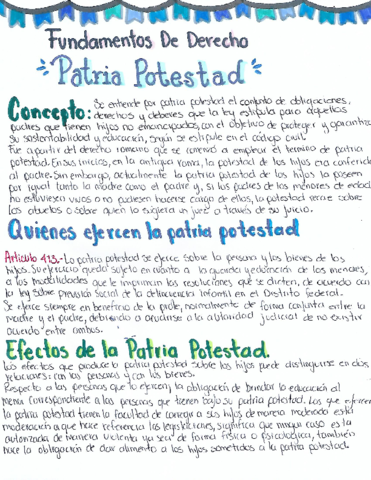 Fundamentos De Derecho
Patria Potestad
Concepto: Se entiende por patria potestad el conjunto de obligaciones,
derechos y deberes que la ley estipula para aquellos
padres que tienen hijos no emancipados, con el objetivo de proteger y garantizar
su sustentabilidad y educación, según se estipule en el código civil.
Fue a partir del derecho romano que se comenzó a emplear el termino de patria
potestad. En sus inicios, en la antigua roma, la potestad de los hijos era conferida
al padre. Sin embargo, actualmente la patria potestad de los hijos la poseen
por igual tanto la madre como el padre y, si los padres de los menores de edad
no estuviesen vivos o no pudiesen hacerse cargo de ellos, la potestad recae sobre
los abuelos o sobre quien lo sugiera un juez a través de su juicio.
Quienes ejercen la patria potestad
Artículo 413.- La patria potestad se ejerce sobre la persona y los bienes de los
hijos. Su ejercicio queda sujeto en cuanto a la guarda y educación de los menores,
a las modalidades que le impriman las resoluciones que se dicten, de acuerdo con
la ley sobre previsión social de la delincuencia infantil en el Distrito federal.
Se ejerce siempre en beneficio de la prole, normalmente de forma conjunta entre la
madre y el padre, debiendo a acudirse a la autoridad judicial de no existir
acuerdo entre ambos.
Efectos de la Patria Potestad.
Los efectos que produce la patria potestad sobre los hijos puede distinguirse en dos
relaciones: con las personas y con los bienes.
Respecto a las personas que lo ejercen, la obligación de brindar la educación al
menor correspondiente a las personas que tienen bajo su patria potestad. Los que ejercen
la patria potestad tienen la facultad de corregir a sus hijos de manera moderada esta
moderación a que hace referencia las legislaciones, significa que ningun caso es ta
autorizada de manera violenta ya sea de forma física o psicologica, también
nace la obligación de dar alimento a los hijos sometidos a la patria potestad.